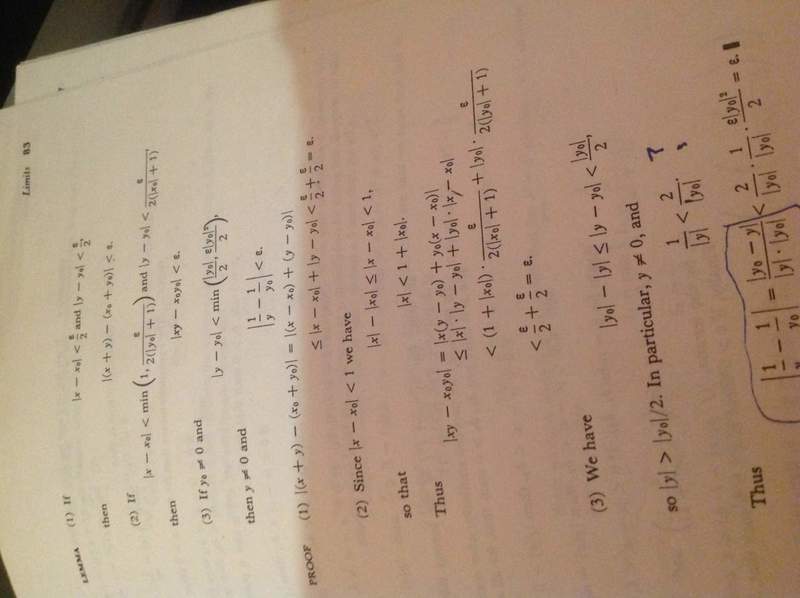 Limits 83
LEMMA (1) If
|x − x₀| < ε/2 and |y − y₀| < ε/2
then
|(x + y) − (x₀ + y₀)| < ε.
(2) If
|x − x₀| < min(1, ε/(2(|y₀| + 1))) and |y − y₀| < ε/(2(|x₀| + 1)),
then
|xy − x₀y₀| < ε.
(3) If y₀ ≠ 0 and
|y − y₀| < min(|y₀|/2, ε|y₀|²/2),
then y ≠ 0 and
|1/y − 1/y₀| < ε.
PROOF (1) |(x + y) − (x₀ + y₀)| = |(x − x₀) + (y − y₀)|
≤ |x − x₀| + |y − y₀| < ε/2 + ε/2 = ε.
(2) Since |x − x₀| < 1 we have
|x| − |x₀| ≤ |x − x₀| < 1,
so that
|x| < 1 + |x₀|.
Thus
|xy − x₀y₀| = |x(y − y₀) + y₀(x − x₀)|
≤ |x| · |y − y₀| + |y₀| · |x − x₀|
< (1 + |x₀|) · ε/(2(|x₀| + 1)) + |y₀| · ε/(2(|y₀| + 1))
< ε/2 + ε/2 = ε.
(3) We have
|y₀| − |y| ≤ |y − y₀| < |y₀|/2,
so |y| > |y₀|/2. In particular, y ≠ 0, and
1/|y| < 2/|y₀|. ?
Thus
|1/y − 1/y₀| = |y₀ − y|/(|y| · |y₀|) < 2/|y₀| · 1/|y₀| · ε|y₀|²/2 = ε. ▮